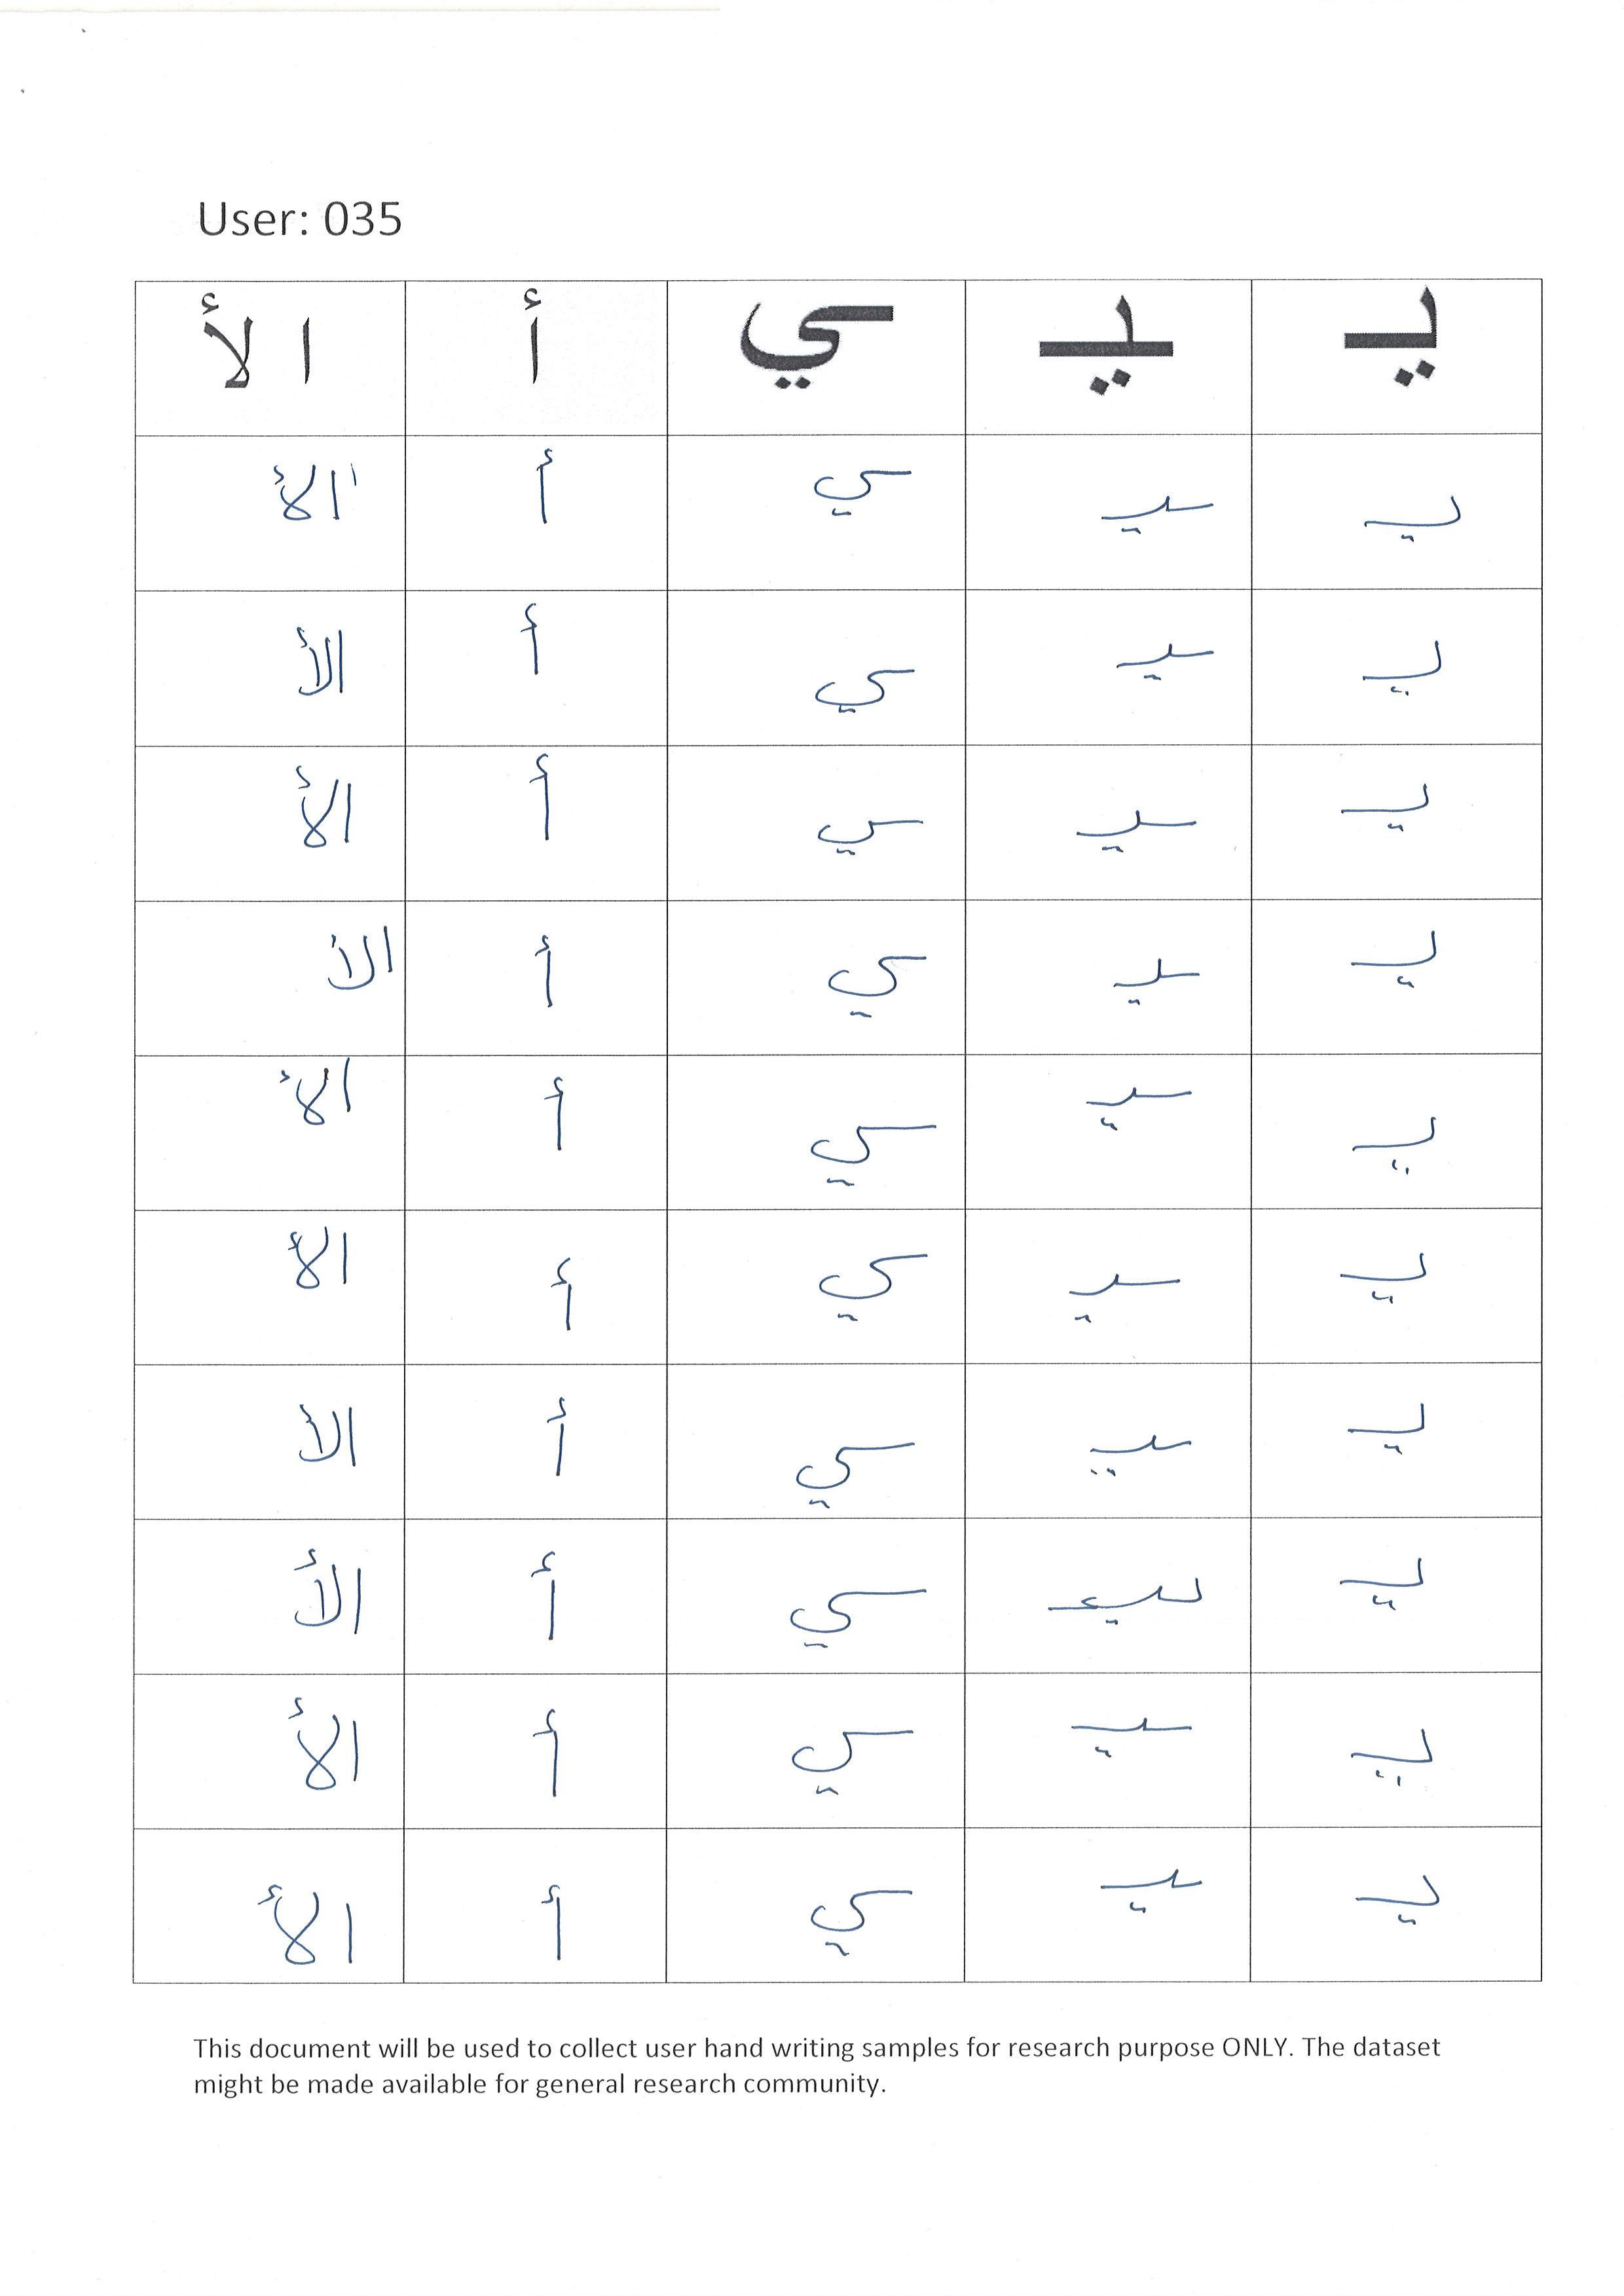 User: 035
يـ ـيـ ـي أ ا لأ
يـ ـيـ ـي أ الأ
يـ ـيـ ـي أ الأ
يـ ـيـ ـي أ الأ
يـ ـيـ ـي أ الأ
يـ ـيـ ـي أ الأ
يـ ـيـ ـي أ الأ
يـ ـيـ ـي أ الأ
يـ ـي أ الأ
يـ ـيـ ـي أ الأ
يـ ـيـ ـي أ الأ
This document will be used to collect user hand writing samples for research purpose ONLY. The dataset
might be made available for general research community.